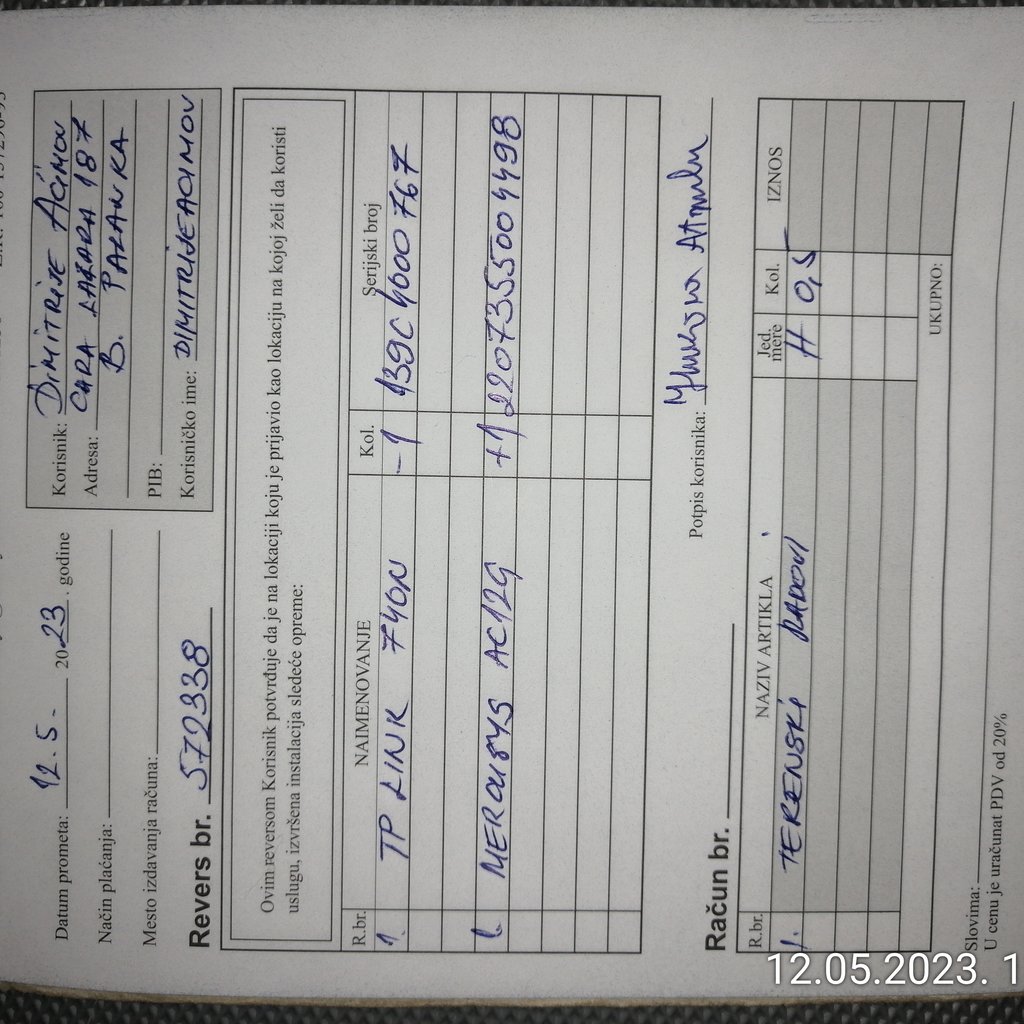 Datum prometa: 12.5- 2023. godine
Način plaćanja:
Mesto izdavanja računa:
Korisnik: DIMITRIJE AĆIMOV
Adresa: CARA LAZARA 187
B. PALANKA
PIB:
Korisničko ime: DIMITRIJEACIMOV
Revers br. 572338
Ovim reversom Korisnik potvrđuje da je na lokaciji koju je prijavio kao lokaciju na kojoj želi da koristi
uslugu, izvršena instalacija sledeće opreme:
R.br. NAIMENOVANJE Kol. Serijski broj
1. TP LINK 740N -1 139C4000767
MERCUSYS AC12G +1 2207355004498
Potpis korisnika:
Račun br.
R.br. NAZIV ARTIKLA Jed. mere Kol. IZNOS
1. TERENSKI RADOVI H 0,5
UKUPNO:
Slovima:
U cenu je uračunat PDV od 20%
12.05.2023. 1